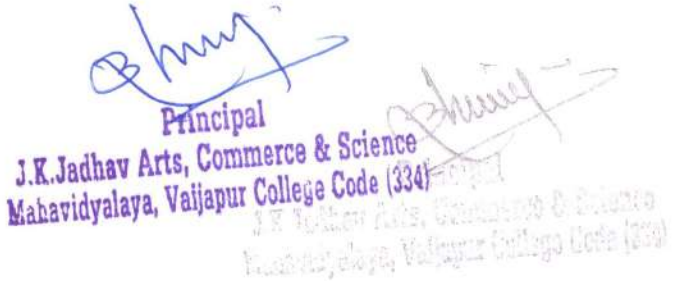 Principal
J.K.Jadhav Arts, Commerce & Science
Mahavidyalaya, Vaijapur College Code (334)
Principal
J.K Jadhav Arts, Commerce & Science
Mahavidyalaya, Vaijapur College Code (334)